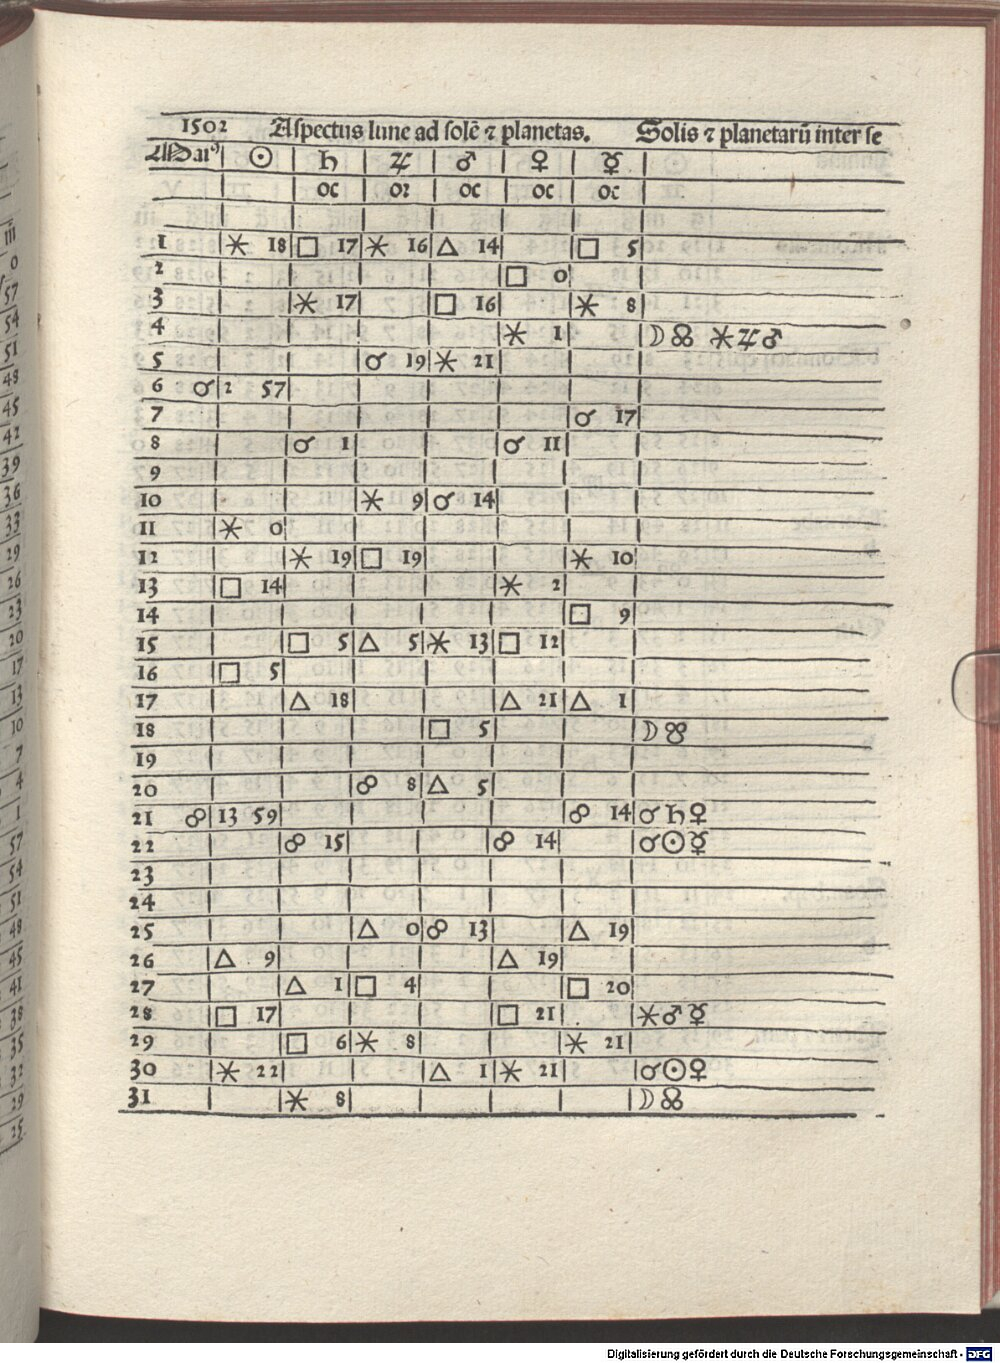 1502 Aspectus lune ad solē ⁊ planetas. Solis ⁊ planetarū inter se
Maiꝰ ☉ ♄ ♃ ♂ ♀ ☿
oc or oc oc oc
1 ⚹ 18 □ 17 ⚹ 16 △ 14 □ 5
2 □ 0
3 ⚹ 17 □ 16 ⚹ 8
4 ⚹ 1 ☽ ☊ ⚹ ♃ ♂
5 ☌ 19 ⚹ 21
6 ☌ 2 57
7 ☌ 17
8 ☌ 1 ☌ 11
9
10 ⚹ 9 ☌ 14
11 ⚹ 0
12 ⚹ 19 □ 19 ⚹ 10
13 □ 14 ⚹ 2
14 □ 9
15 □ 5 △ 5 ⚹ 13 □ 12
16 □ 5
17 △ 18 △ 21 △ 1
18 □ 5 ☽ ☋
19
20 ☍ 8 △ 5
21 ☍ 13 59 ☍ 14 ☌ ♄ ♀
22 ☍ 15 ☍ 14 ☌ ☉ ☿
23
24
25 △ 0 ☍ 13 △ 19
26 △ 9 △ 19
27 △ 1 □ 4 □ 20
28 □ 17 □ 21 ⚹ ♂ ☿
29 □ 6 ⚹ 8 ⚹ 21
30 ⚹ 22 △ 1 ⚹ 21 ☌ ☉ ♀
31 ⚹ 8 ☽ ☊
Digitalisierung gefördert durch die Deutsche Forschungsgemeinschaft - DFG